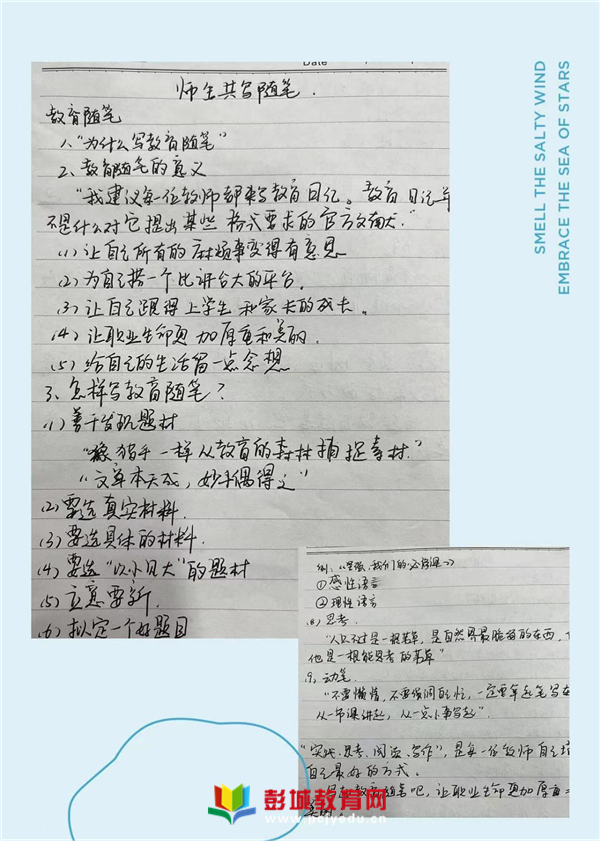 SMELL THE SALTY WIND
EMBRACE THE SEA OF STARS
Date
师生共写随笔.
教育随笔
1、"为什么写教育随笔"
2、教育随笔的意义
"我建议每一位教师都来写教育日记。教育日记并
不是什么对它提出某些格式要求的官方文献。"
(1)让自己所有的麻烦事变得有意思
(2)为自己搭一个比讲台大的平台.
(3)让自己跟得上学生和家长的成长。
(4)让职业生命更加厚重和美丽.
(5)给自己的生活留一点念想
3、怎样写教育随笔?
(1)善于发现题材
"像猎手一样从教育的森林捕捉素材."
"文章本天成,妙手偶得之"
(2)要选真实材料.
(3)要选具体的材料.
(4)要选"以小见大"的题材
(5)立意要新.
(6)拟定一个好题目
例:我们的必修课
①感性语言
②理性语言
(8)思考.
"人只不过是一根苇草,是自然界最脆弱的东西,
他是一根能思考的苇草"
9、动笔.
"不要懒惰,不要借口忙,一定要拿起笔写
从一节课讲起,从一点小事写起".
"实践、思考、阅读、写作",是每一位教师自己
自己最好的方式。
教育随笔吧,让职业生命更加厚重
美丽.
彭城教育网
www.pcjyedu.cn